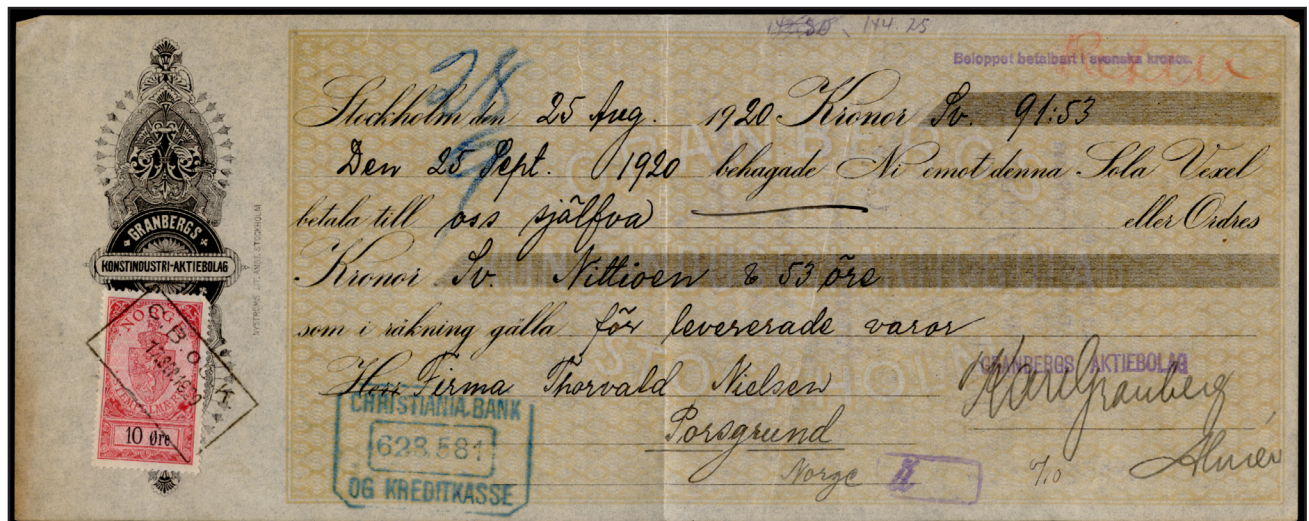 144.25
Beloppet betalbart i svenska kronor.
28
9
Stockholm den 25 Aug. 1920 Kronor Sv. 91:53
Den 25 Sept. 1920 behagade Ni emot denna Sola Vexel
betala till oss själfva eller Ordres
Kronor Sv. Nittioen & 53 öre
som i räkning gälla för levererade varor
Herr Firma Thorvald Nielsen
Porsgrund
Norge
GRANBERGS AKTIEBOLAG
Karl Granberg
GRANBERGS
KONSTINDUSTRI-AKTIEBOLAG
NORGE
10 Øre
CHRISTIANIA BANK
628.581
OG KREDITKASSE
GRANBERGS
KONSTINDUSTRI-AKTIEBOLAG
STOCKHOLM